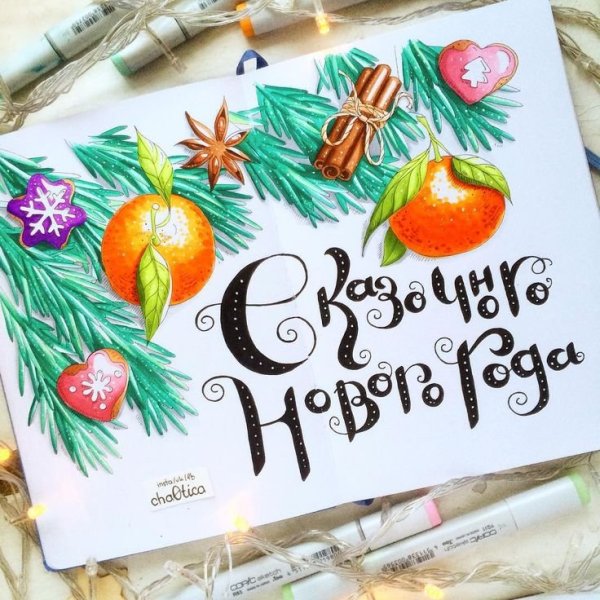 Сказочного
Нового Года
insta/vk/fb
cha0tica
COPIC sketch
COPIC sketch